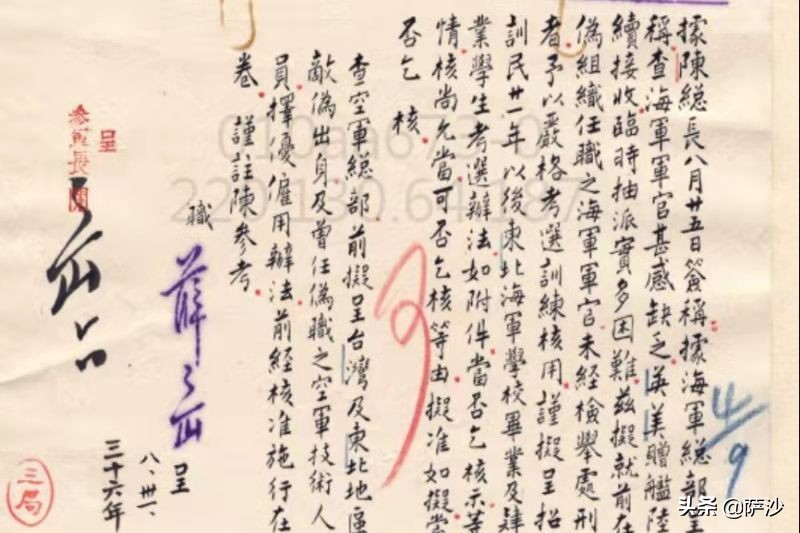 據陳總長八月廿五日簽稱據海軍總部呈
稱查海軍軍官甚感缺乏英美贈艦陸
續接收臨時抽派實多困難茲擬就前在
偽組織任職之海軍軍官未經檢舉處刑
者予以嚴格考選訓練核用謹擬呈招
訓民廿一年以後東北海軍學校畢業及肄
業學生考選辦法如附件當否乞核示等
情核尚允當可否乞核等由擬准如擬當
否乞核
查空軍總部前擬呈台灣及東北地區
敵偽出身及曾任偽職之空軍技術人
員擇優僱用辦法前經核准施行在
卷謹註陳參考
職薛岳呈
八、卅一、
三十六年
呈
三局
4/9
220.130.64.187
头条 @萨沙